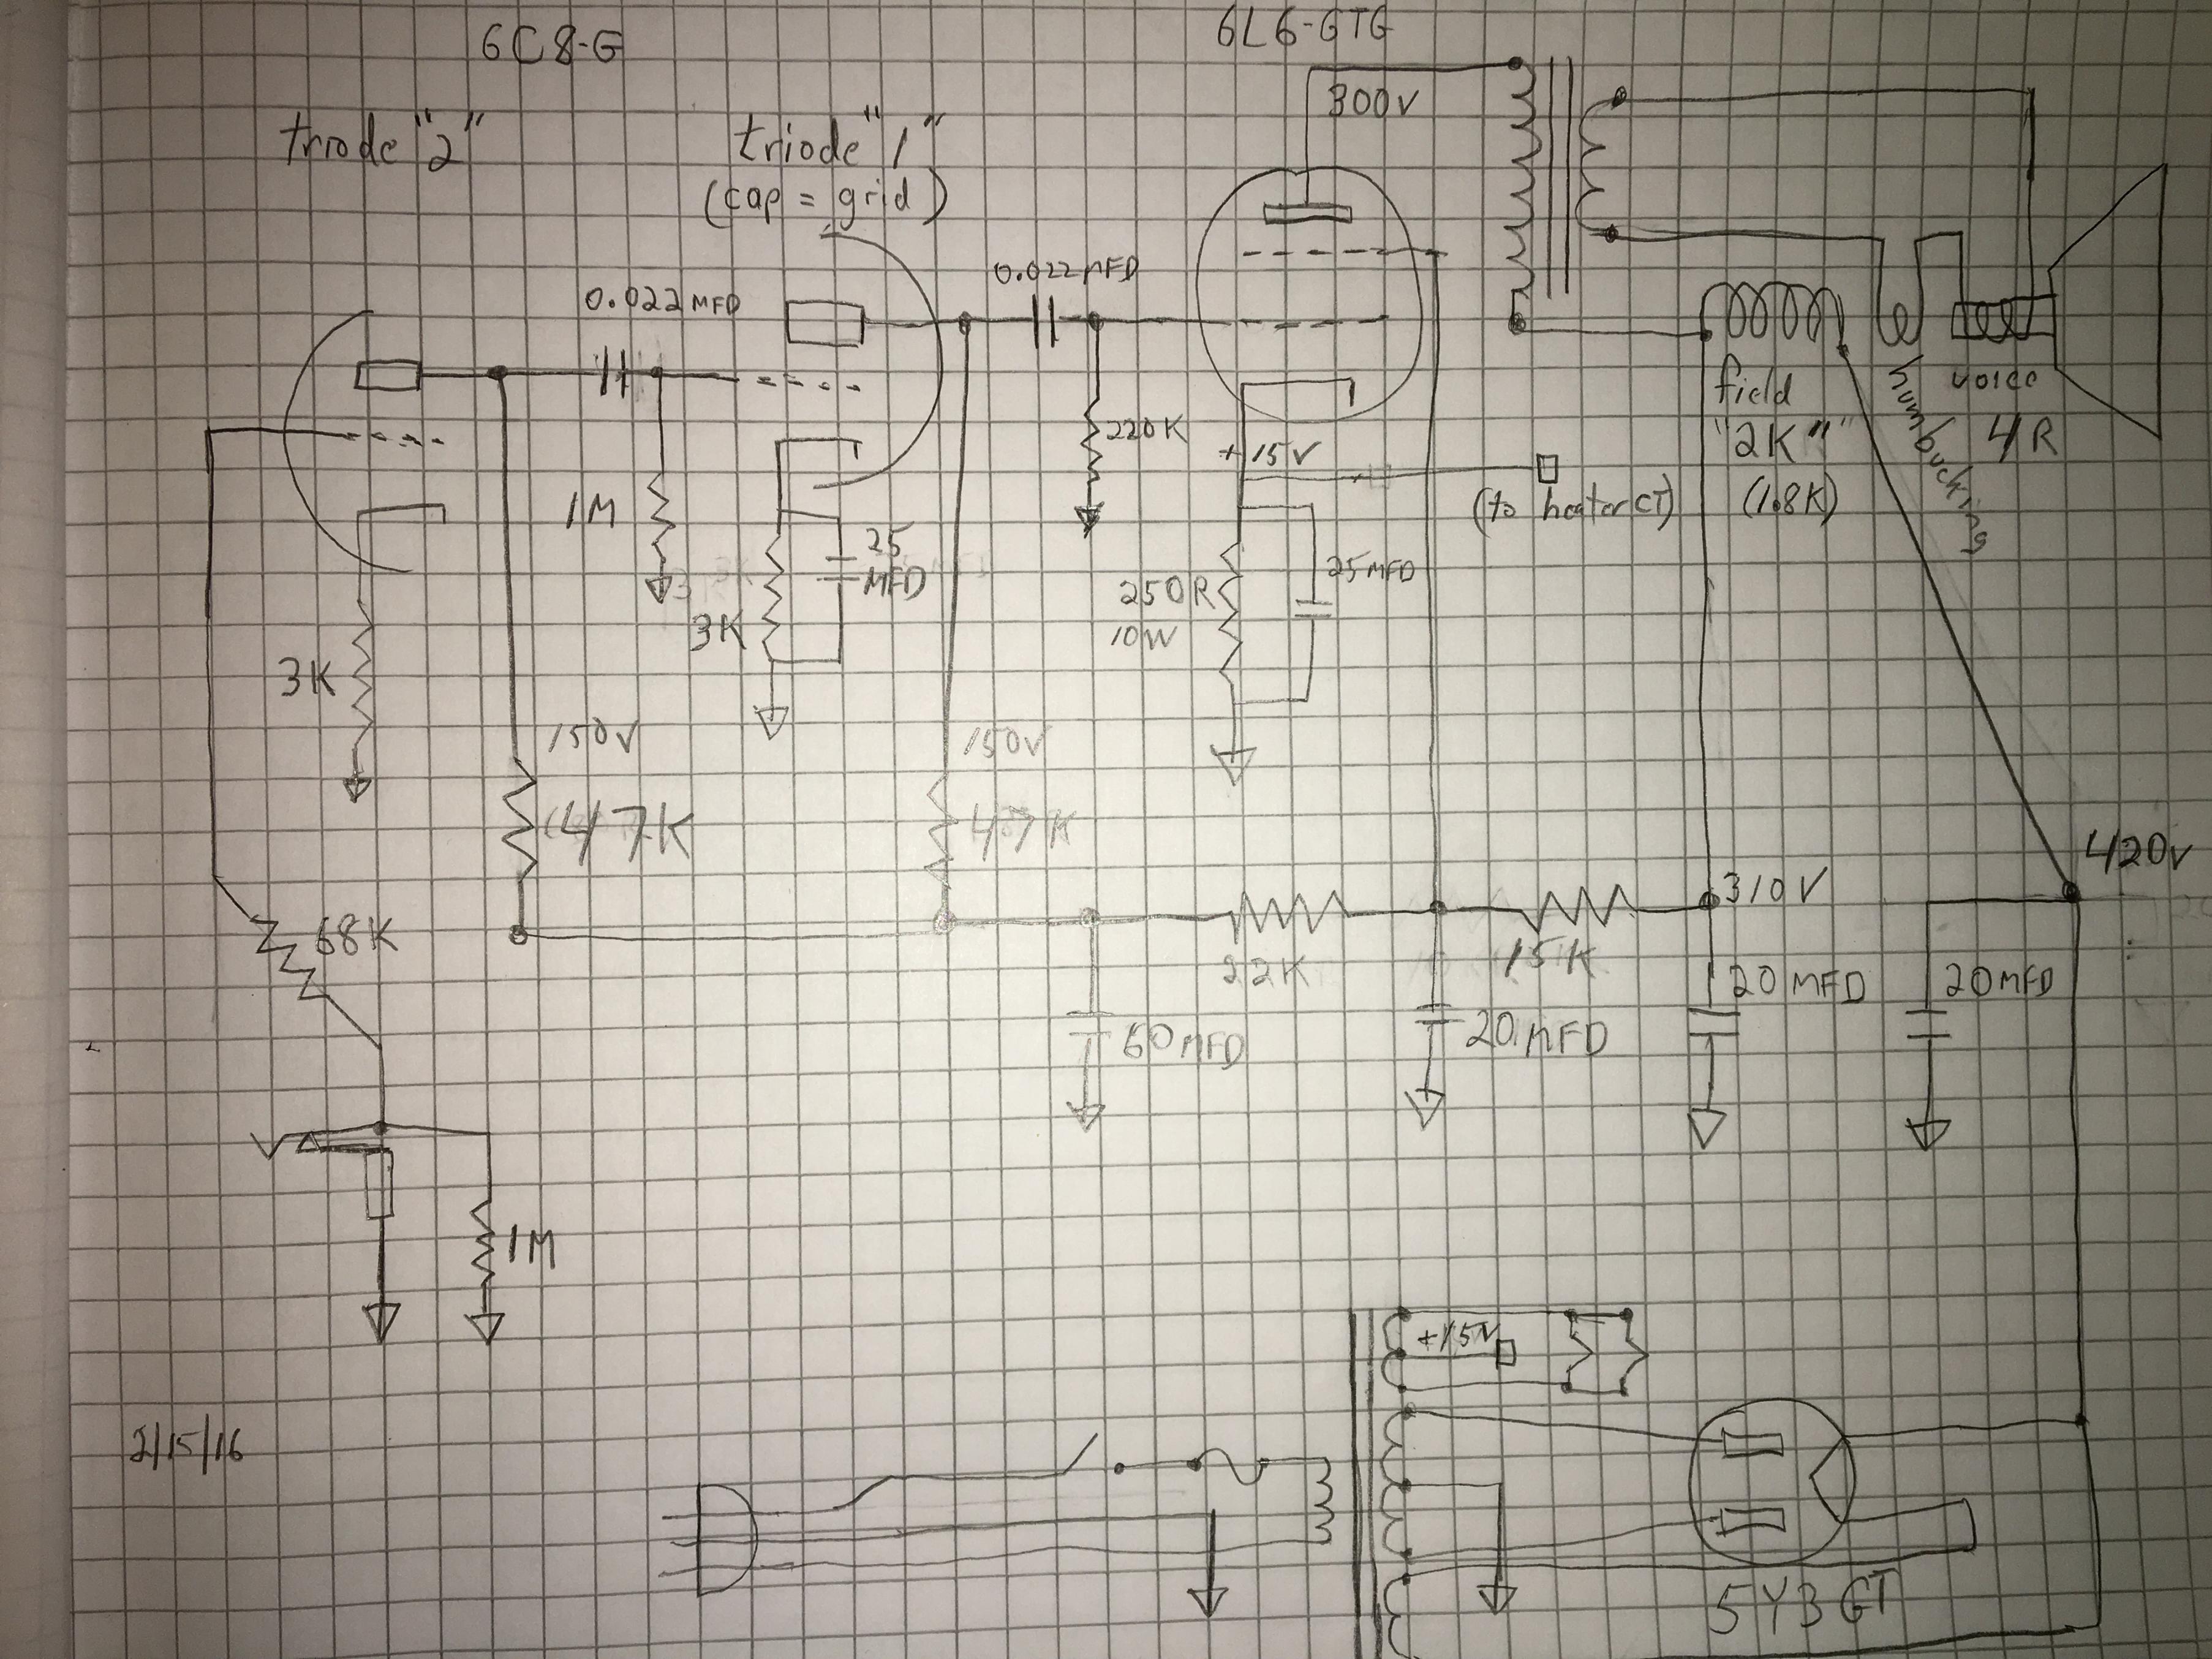 6C8-G
6L6-GTG
triode "2"
triode "1"
(cap = grid)
300V
0.022 MFD
0.022 MFD
field
"2K"
(1.8K)
humbucking
voice
4R
220K
+15V
(to heater CT)
1M
25
MFD
3K
3K
250R
10W
25MFD
150V
47K
150V
47K
310V
420V
68K
22K
15K
60MFD
20MFD
20MFD
20MFD
1M
+15V
2/15/16
5Y3GT